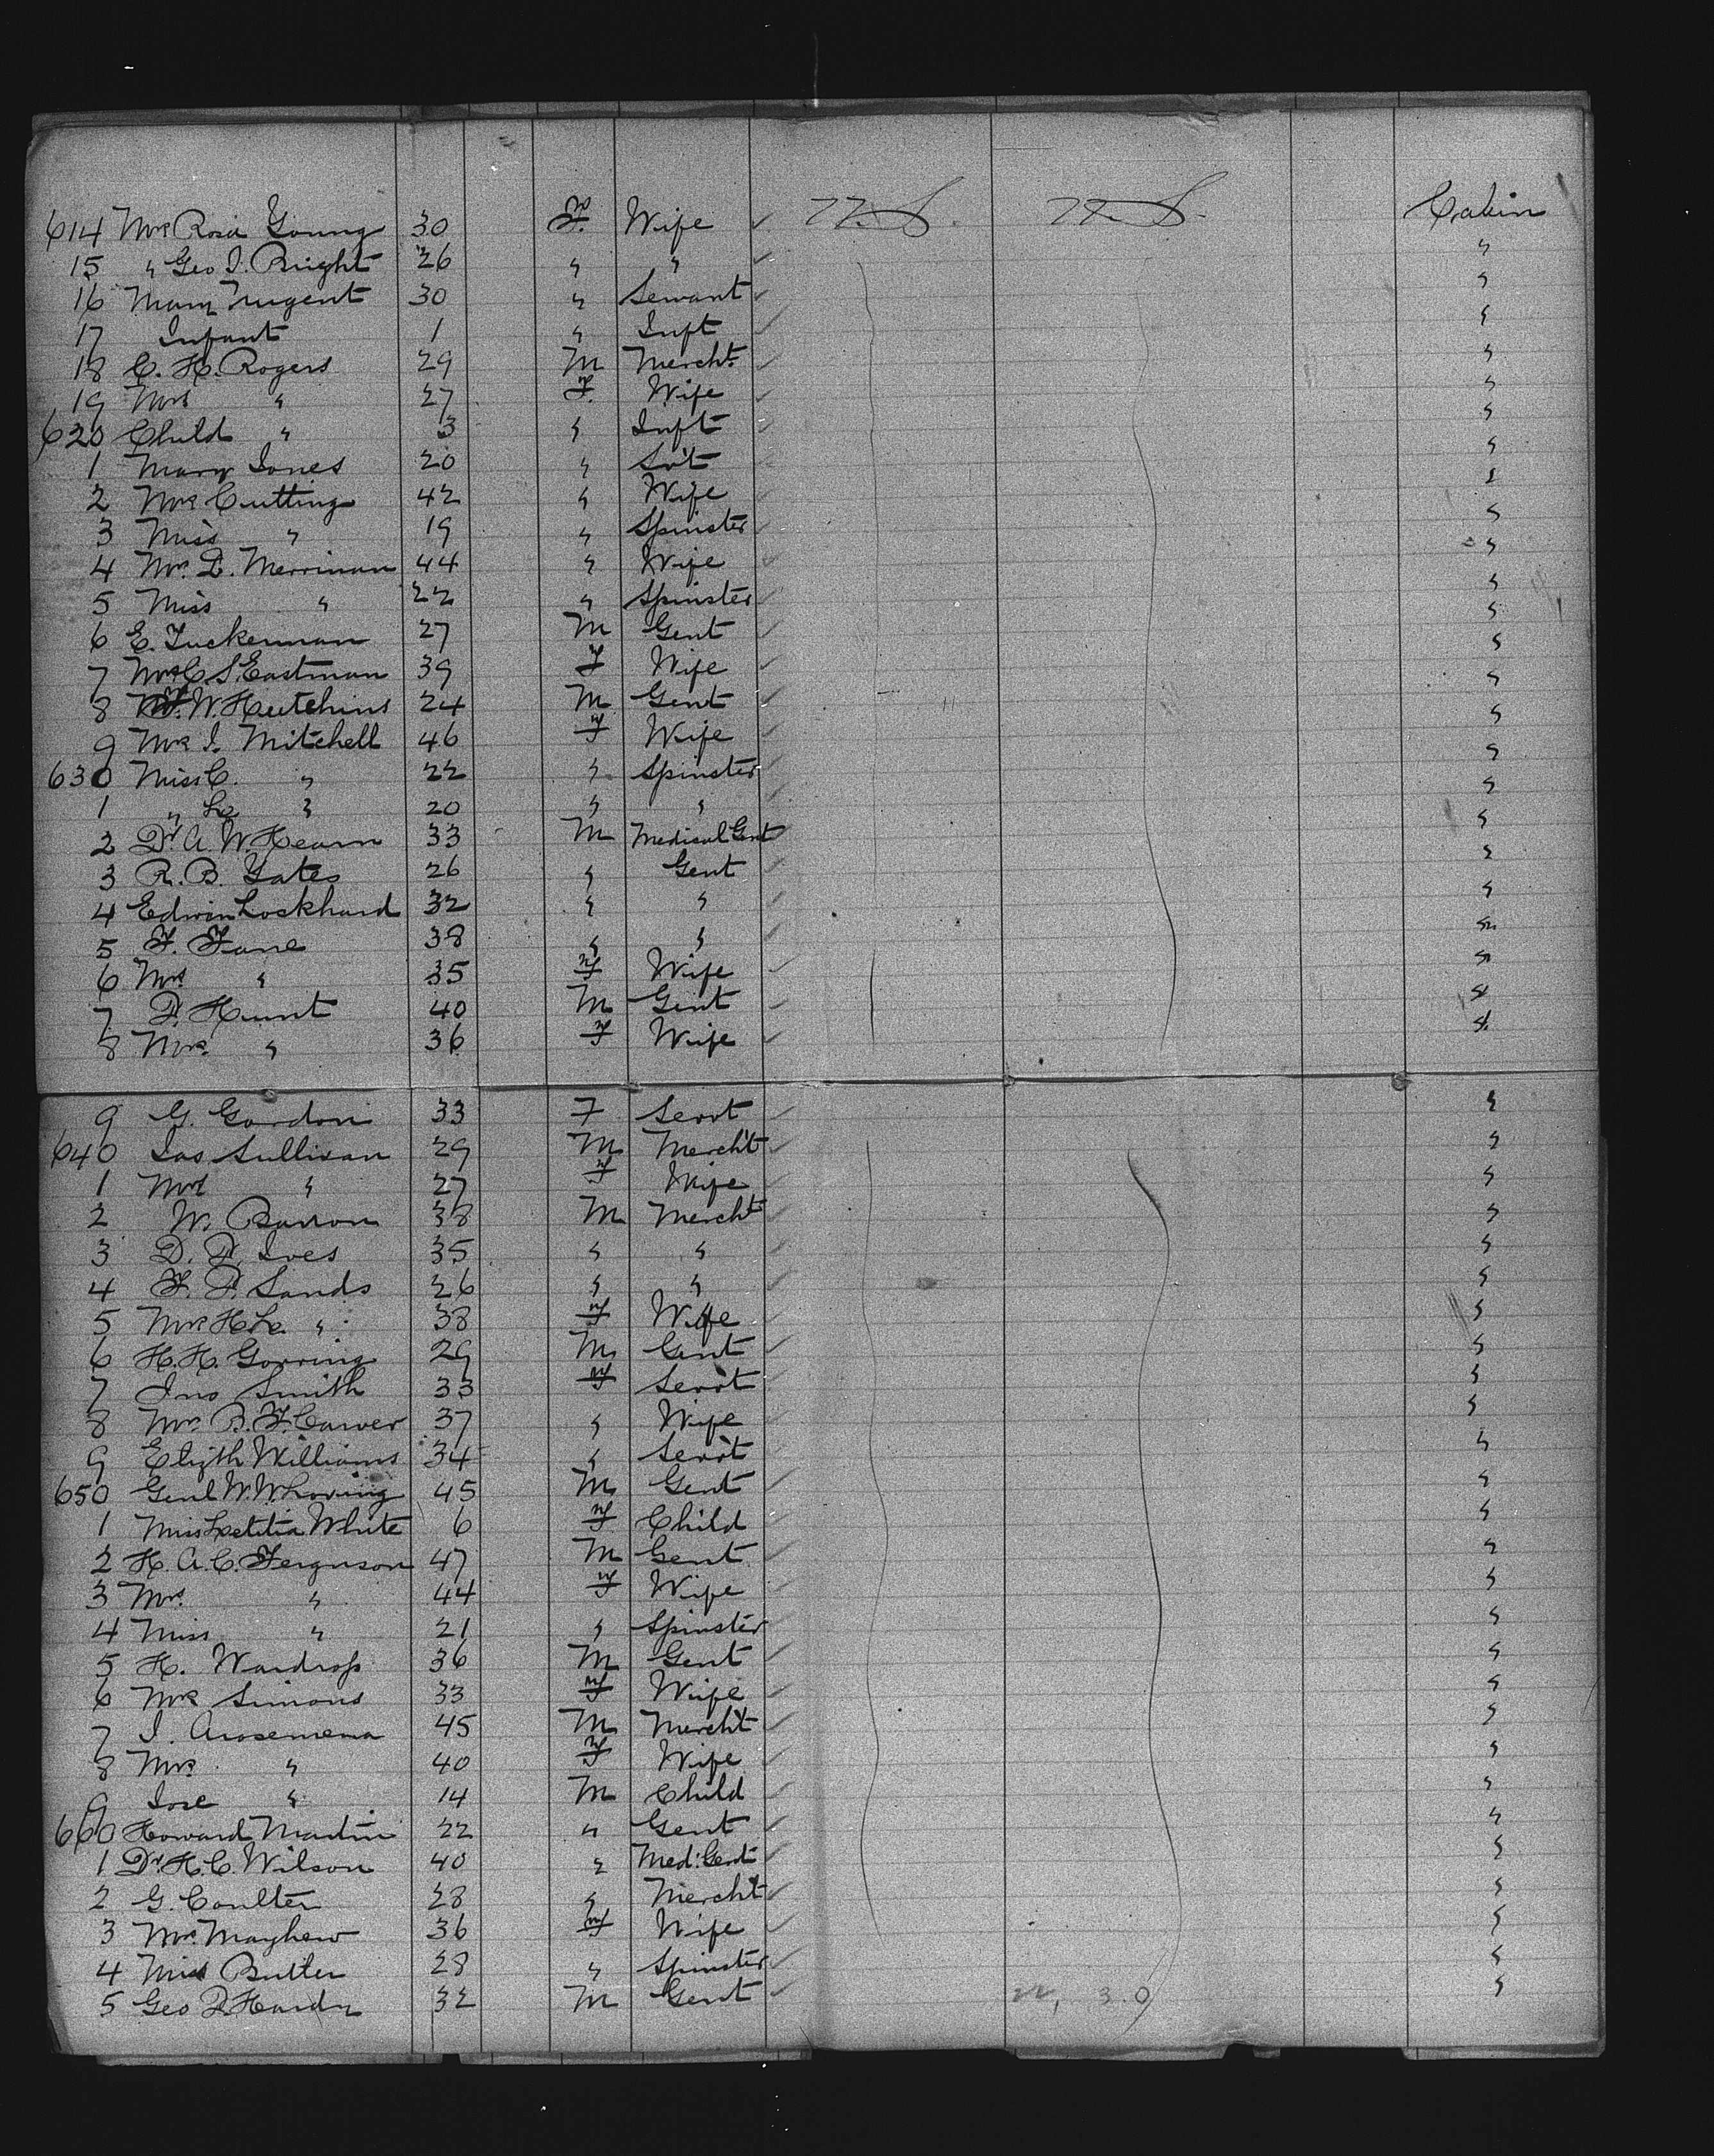 614 Mrs Rosa Young 30 F. Wife U. S. U. S. Cabin
15 " Geo I. Bright 26 " " "
16 Mary Nugent 30 " Servant "
17 Infant 1 " Inft "
18 C. H. Rogers 29 M Mercht "
19 Mrs " 27 F. Wife "
620 Child " 3 " Inft "
1 Mary Jones 20 " Svt "
2 Mrs Cutting 42 " Wife "
3 Miss " 19 " Spinster "
4 Mrs. D. Merriman 44 " Wife "
5 Miss " 22 " Spinster "
6 E. Tuckerman 27 M Gent "
7 Mrs C. S. Eastman 39 F Wife "
8 W. Hutchins 24 M Gent "
9 Mrs I. Mitchell 46 F Wife "
630 Miss C. " 22 " Spinster "
1 " L " 20 " " "
2 Dr A. W. Hearn 33 M Medical Gent "
3 R. B. Yates 26 " Gent "
4 Edwin Lockhard 32 " " "
5 F. Fane 38 " " "
6 Mrs " 35 F Wife "
7 D. Hunt 40 M Gent "
8 Mrs. " 36 F Wife "
9 G. Gordon 33 F Servt "
640 Jas Sullivan 29 M Mercht "
1 Mrs " 27 F Wife "
2 W. Barron 38 M Mercht "
3 D. P. Ives 35 " " "
4 F. P. Sands 26 " " "
5 Mrs H L. " 38 F Wife "
6 H. H. Gorring 29 M Gent "
7 Jno Smith 33 F Servt "
8 Mrs. B. F. Carver 37 " Wife "
9 Elizth Williams 34 " Servt "
650 Genl W. W. Loring 45 M Gent "
1 Miss Letitia White 6 F Child "
2 H. A. C. Ferguson 47 M Gent "
3 Mrs. " 44 F Wife "
4 Miss " 21 " Spinster "
5 H. Wardrop 36 M Gent "
6 Mrs Simons 33 F Wife "
7 J. Arosemena 45 M Mercht "
8 Mrs. " 40 F Wife "
9 Jose " 14 M Child "
660 Howard Martin 22 " Gent "
1 Dr. H. C. Wilson 40 " Med: Gent "
2 G. Coulter 28 " Mercht "
3 Mrs. Mayhew 36 F Wife "
4 Miss Butler 28 " Spinster "
5 Geo Hardy 32 M Gent "